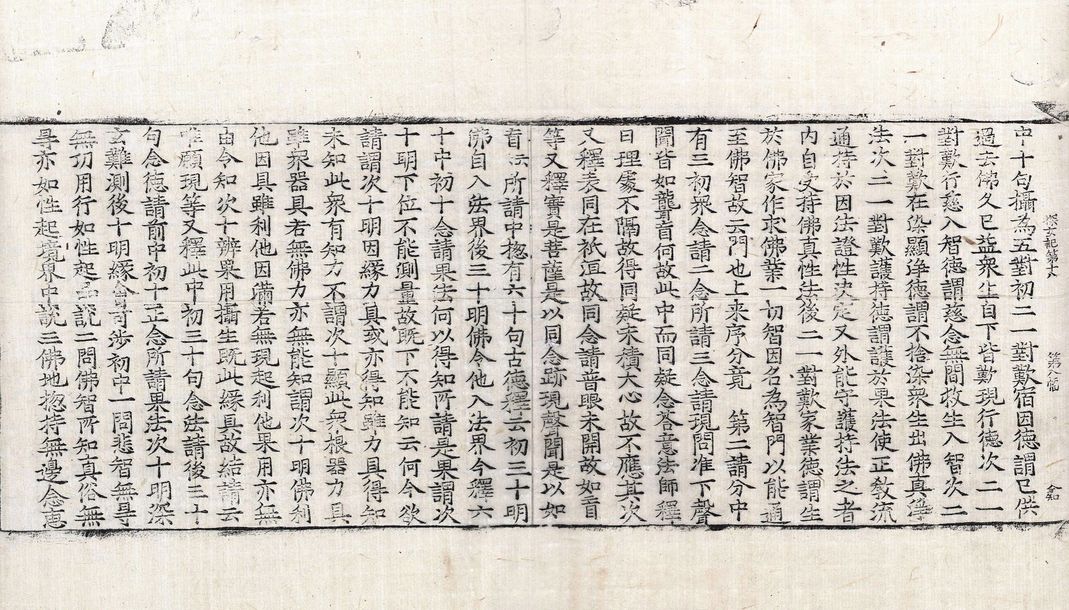 中十句攝為五對初二一對歎宿因德謂已供
探玄記第十八　第八幅　令知
過去佛久已益衆生自下皆歎現行德次二一
對歎行慈入智德謂慈念無間救生入智次二
一對歎在染顯淨德謂不捨染衆生出佛真淨
法次二一對歎護持德謂護於果法使正教流
通持於因法證性決定又外能守護持法之者
內自受持佛真性法後二一對歎家業德謂生
於佛家作求佛業一切智因名為智門以能通
至佛智故云門也上來序分竟　第二請分中
有三初衆念請二念所請三念請現問准下聲
聞皆如聾盲何故此中而同疑念答意法師釋
曰理處不隔故得同疑未積大心故不應其次
又釋表同在祇洹故同念請普眼未開故如盲
等又釋實是菩薩是以同念跡現聲聞是以如
盲二所請中揔有六十句古德釋云初三十明
佛自入法界後三十明佛令他入法界今釋六
十中初十念請果法何以得知所請是果謂次
十明下位不能測量故既下不能知云何今欲
請謂次十明因緣力具或亦得知雖力具得知
未知此衆有知力不謂次十顯此衆根器力具
雖衆器具若無佛力亦無能知謂次十明佛利
他因具雖利他因備若無現起利他果用亦無
由令知次十辨果用攝生既此緣具故結請云
唯願現等又釋此中初三十句念法請後三十
句念德請前中初十正念所請果法次十明深
玄難測後十明緣會可涉初中一問悲智無㝵
無功用行如性起品說二問佛智所知真俗無
㝵亦如性起境界中說三佛地揔持無邊念惠